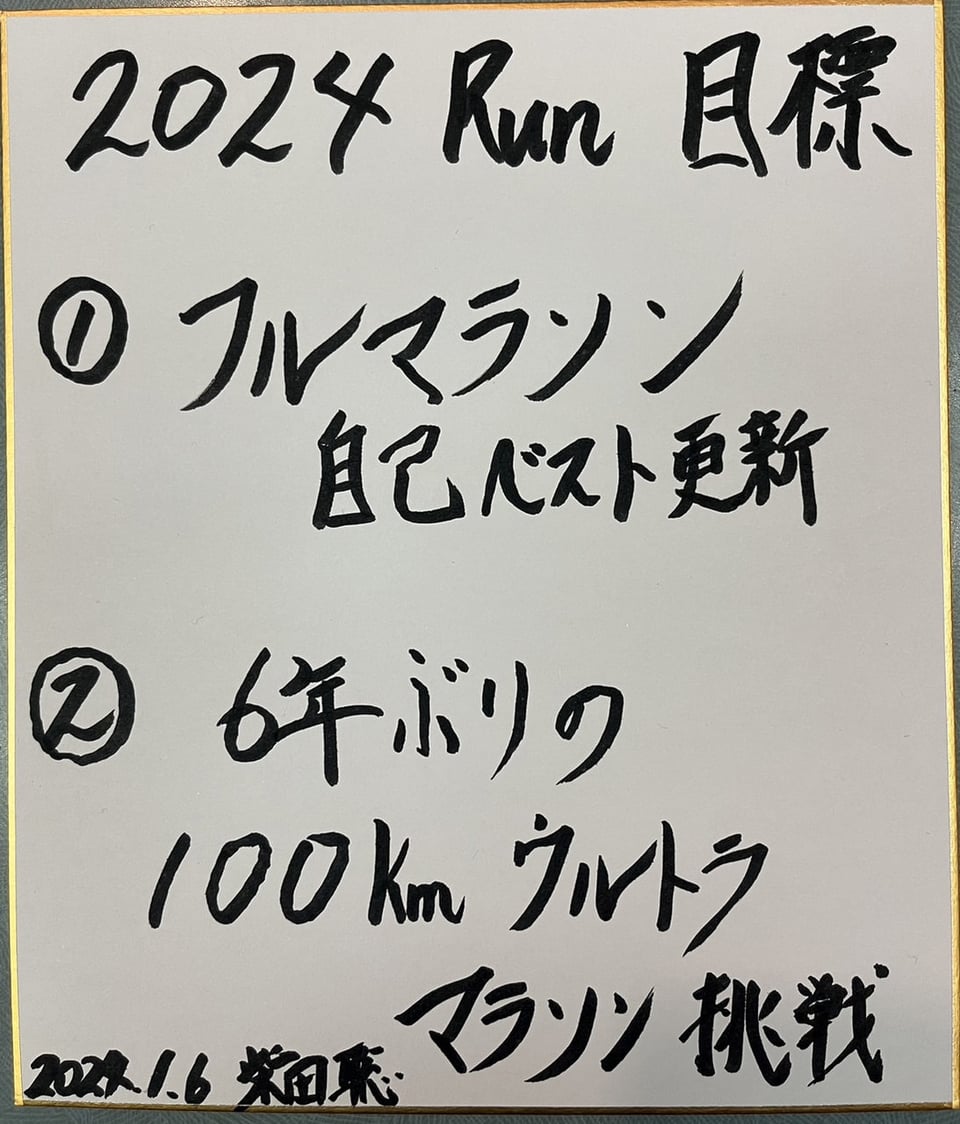 2024 Run 目標
① フルマラソン
自己ベスト更新
② 6年ぶりの
100km ウルトラ
マラソン 挑戦
2024.1.6 柴田聡